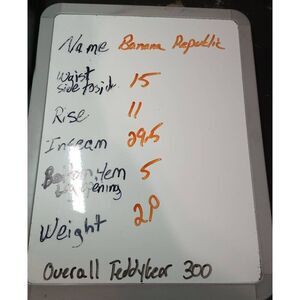 Name Banana Republic
Waist side to side 15
Rise 11
Inseam 29.5
Bottom Hem opening 5
Weight 2P
Overall Teddybear 300